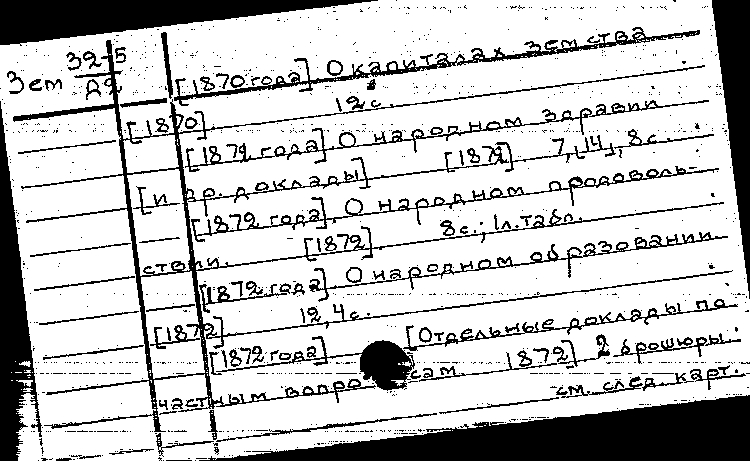 Зем 32-5
Д2
[1870 года]. О капиталах земства
[1870]. 12 с.
[1872 года]. О народном здравии
[и др. доклады]. [1872]. 7, [14], 8 с.
[1872 года]. О народном продоволь-
ствии. [1872]. 8 с.; 1 л. табл.
[1872 года]. О народном образовании.
[1872]. 12, 4 с.
[1872 года]. [Отдельные доклады по
частным вопросам. 1872] 2 брошюры.
см. след. карт.